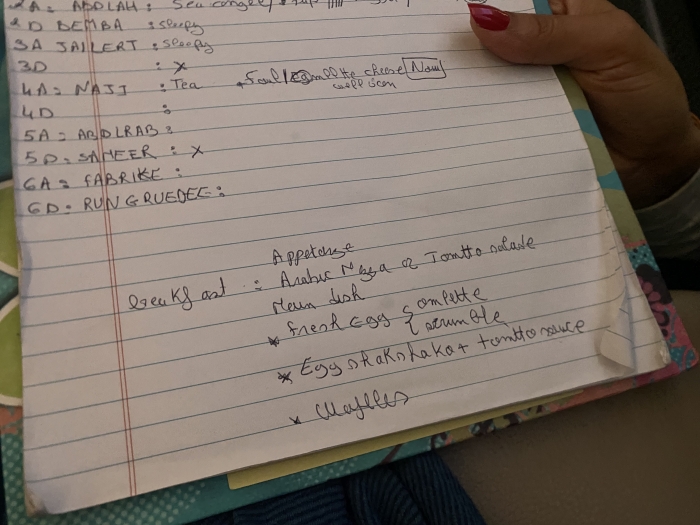 2A: ABDLAH:
2D BEMBA : sleepy
3A JAILERT : sleepy
3D : x
4A: NAJI : Tea omlette cheese Now
well
4D :
5A = ABDLRAB:
5D: SAMEER : x
6A = FABRIKE :
6D: RUNGRUEDEE:
Appetaize
breakfast : Arabic Meza or Tomtto salade
Main dish
* fresh Egg { omlette
{ scrumble
* Egg shakshaka + tomtto sauce
* Waffles